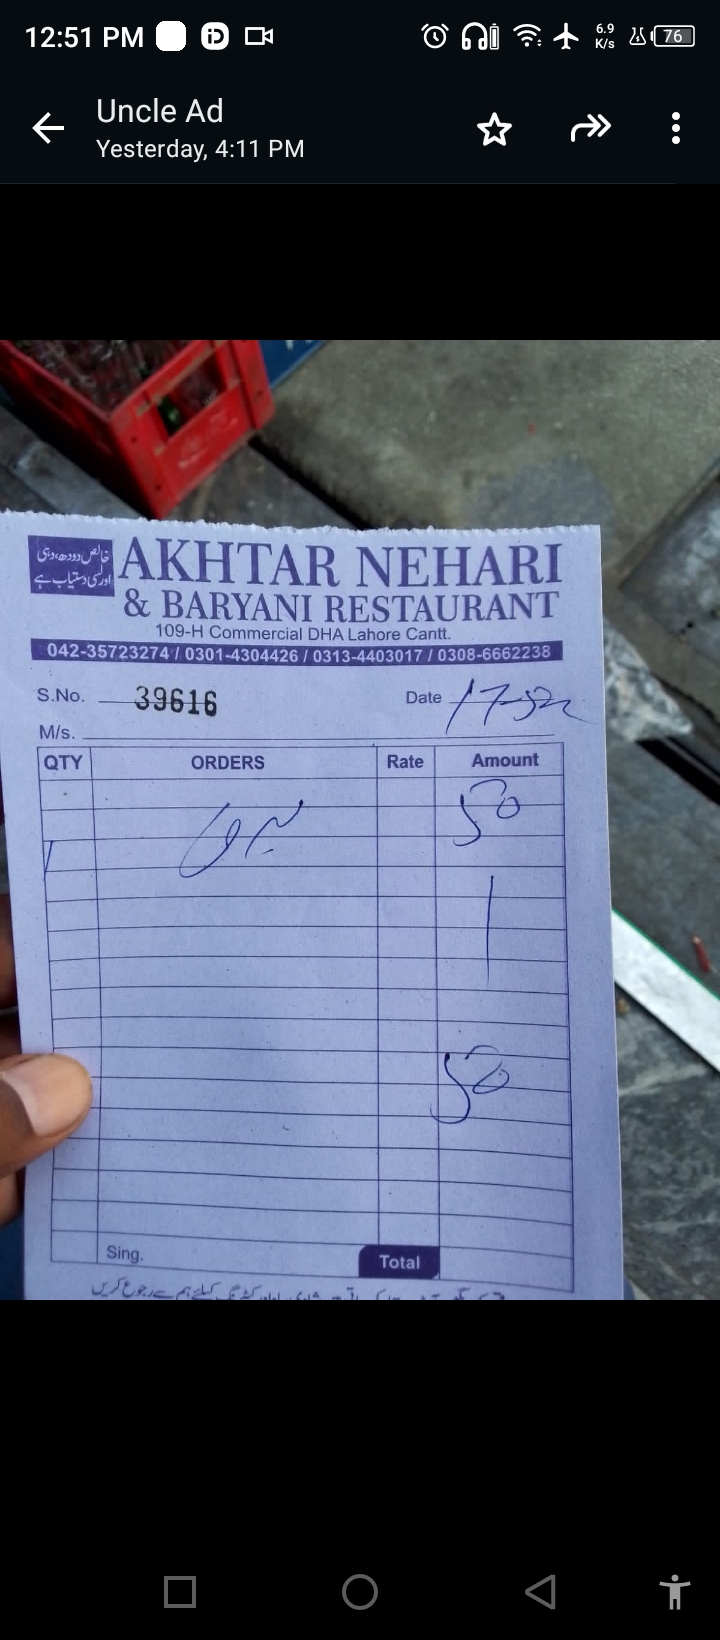 12:51 PM
6.9
K/s
76
Uncle Ad
Yesterday, 4:11 PM
خالص دودھ، دہی
اور لسی دستیاب ہے
AKHTAR NEHARI
& BARYANI RESTAURANT
109-H Commercial DHA Lahore Cantt.
042-35723274 / 0301-4304426 / 0313-4403017 / 0308-6662238
S.No. 39616 Date
M/s.
QTY ORDERS Rate Amount
50
1
50
Sing. Total
کیلئے ہم سے رجوع کریں